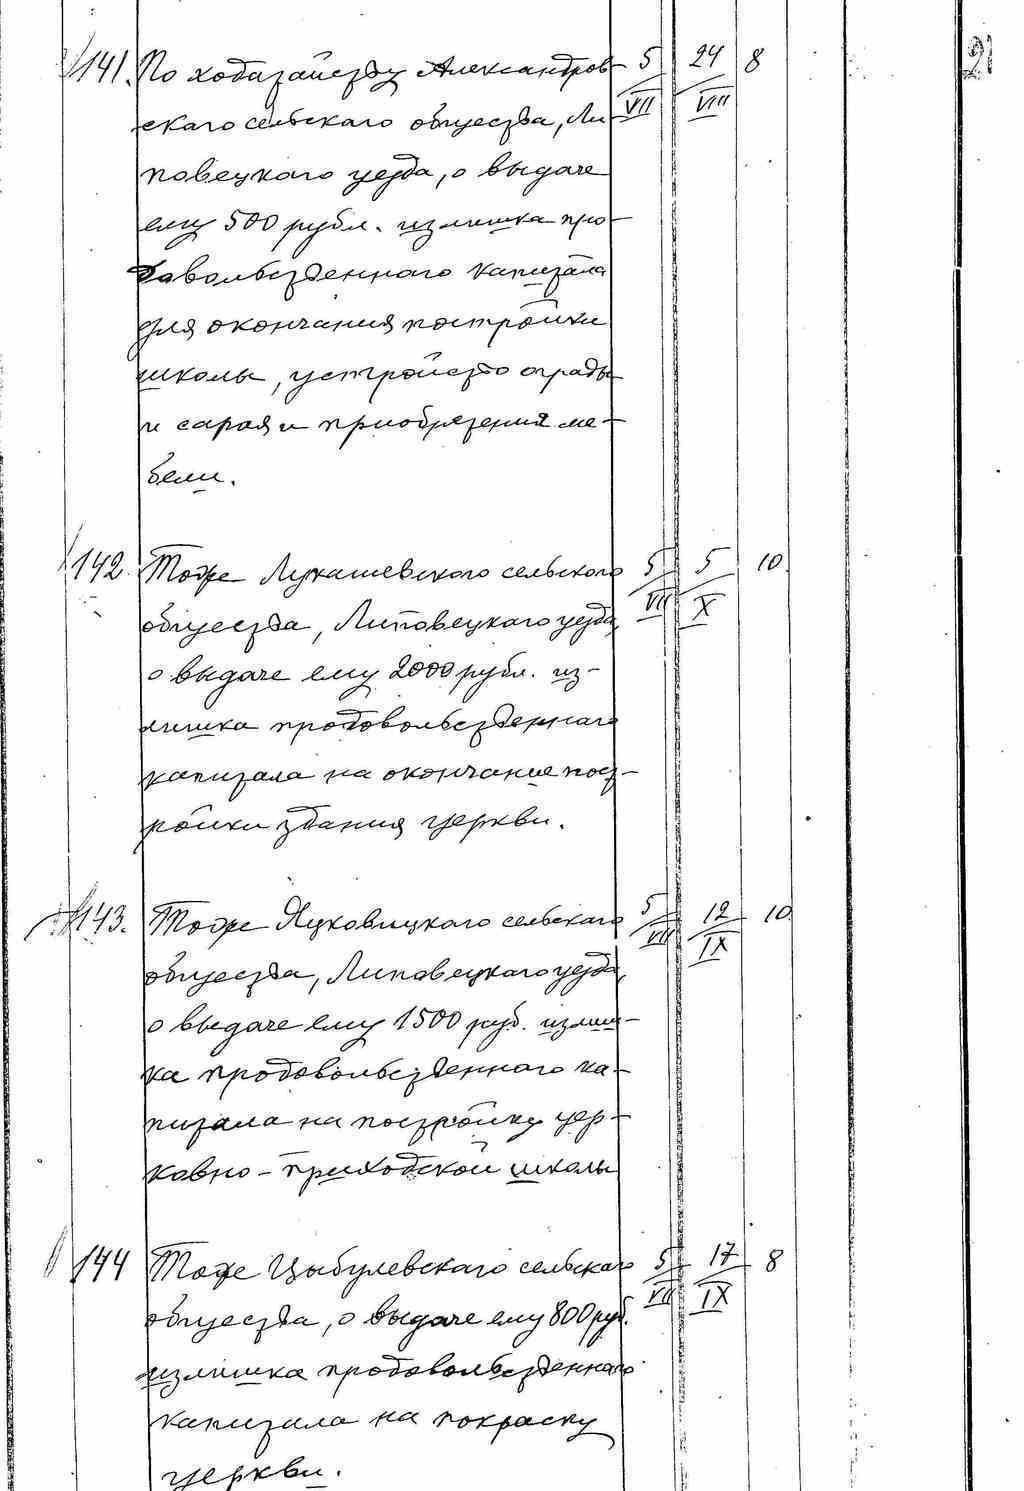 141. По ходатайству Александров- 5/VII 24/VIII 8
скаго сельскаго общества, Ли-
повецкаго уезда, о выдаче
ему 500 рубл. излишка про-
довольственнаго капитала
для окончания постройки
школы, устройство ограды
и сарая и приобретения ме-
бели.
142. Тоже Лукашевского сельского 5/VII 5/X 10.
общества, Липовецкаго уезда,
о выдаче ему 2000 рубл. из-
лишка продовольственнаго
капитала на окончание пост-
ройки здания церкви.
143. Тоже Яцковицкаго сельскаго 5/VII 12/IX 10.
общества, Липовецкаго уезда,
о выдаче ему 1500 руб. излиш-
ка продовольственнаго ка-
питала на постройку цер-
ковно-приходской школы
144 Тоже Цыбулевскаго сельскаго 5/VII 17/IX 8
общества, о выдаче ему 800 руб.
излишка продовольственнаго
капитала на покраску
церкви.